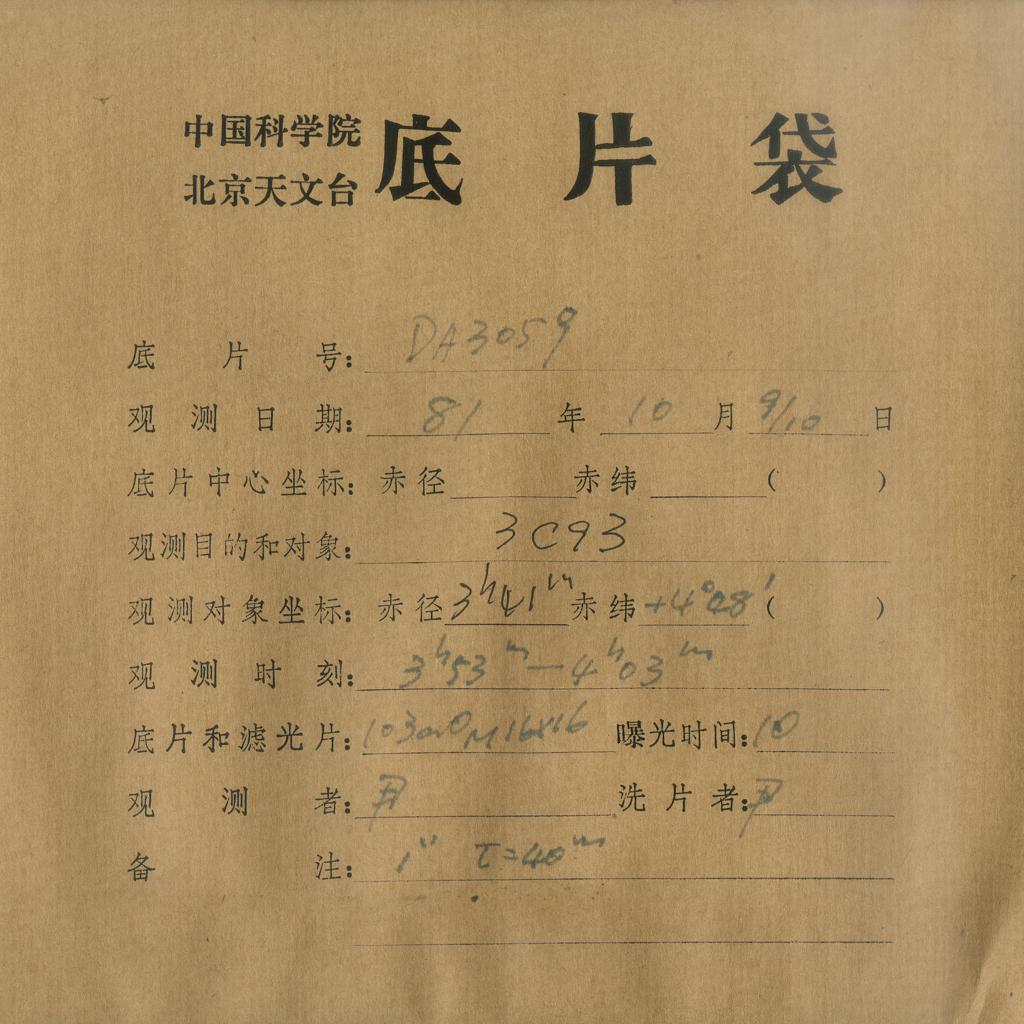 中国科学院
北京天文台 底片袋
底片号: DA3059
观测日期: 81年10月9/10日
底片中心坐标: 赤径 赤纬 ( )
观测目的和对象: 3C93
观测对象坐标: 赤径 3ʰ41ᵐ 赤纬 +4°28′ ( )
观测时刻: 3ʰ53ᵐ—4ʰ03ᵐ
底片和滤光片: 103aO M16X16 曝光时间: 10
观测者: 尹 洗片者: 尹
备注: 1″ τ=40ᵐ